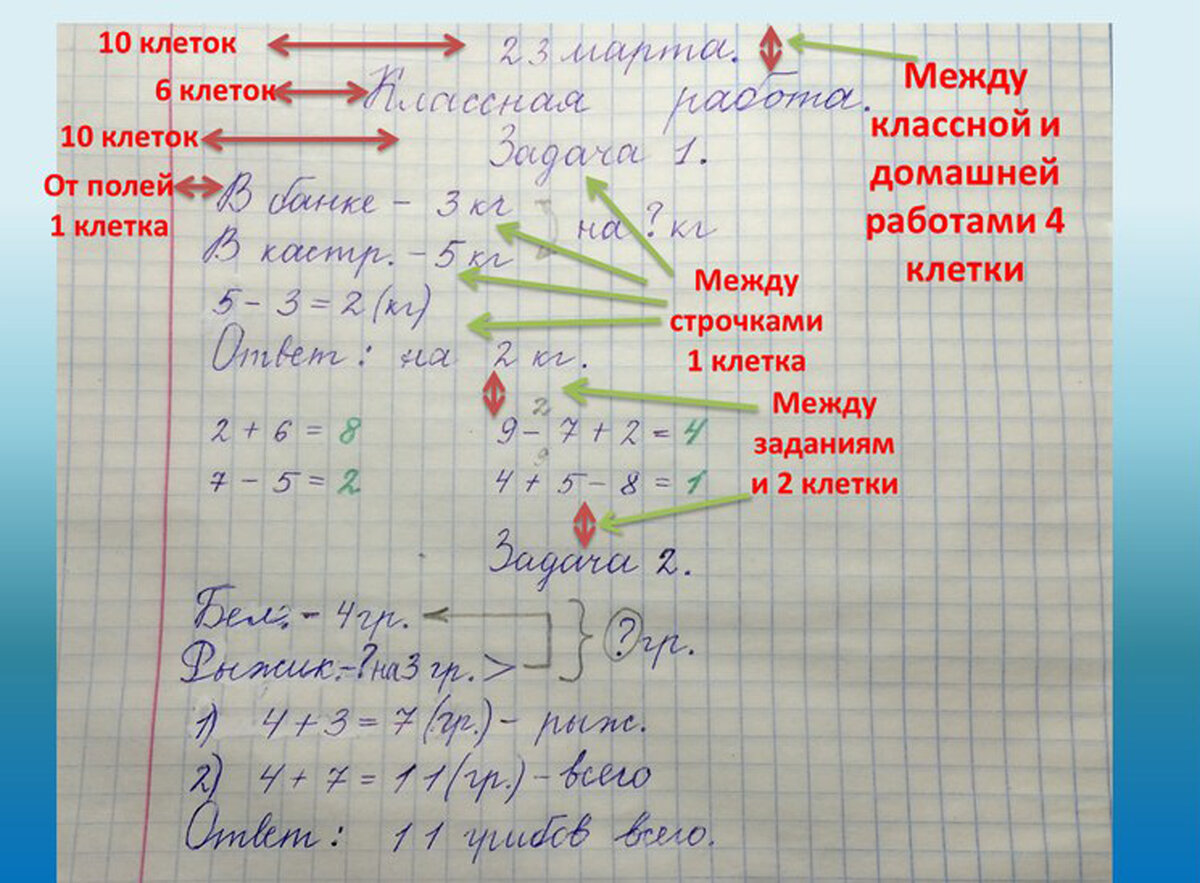 10 клеток
23 марта.
6 клеток
Классная работа.
10 клеток
Задача 1.
От полей
1 клетка
В банке - 3 кг
на ? кг
В кастр. - 5 кг
5 - 3 = 2 (кг)
Ответ: на 2 кг.
Между
классной и
домашней
работами 4
клетки
Между
строчками
1 клетка
Между
заданиям
и 2 клетки
2 + 6 = 8
2
9 - 7 + 2 = 4
7 - 5 = 2
9
4 + 5 - 8 = 1
Задача 2.
Бел. - 4 гр.
Рыжик. - ? на 3 гр. >
? гр.
1) 4 + 3 = 7 (гр.) - рыж.
2) 4 + 7 = 11 (гр.) - всего
Ответ: 11 грибов всего.